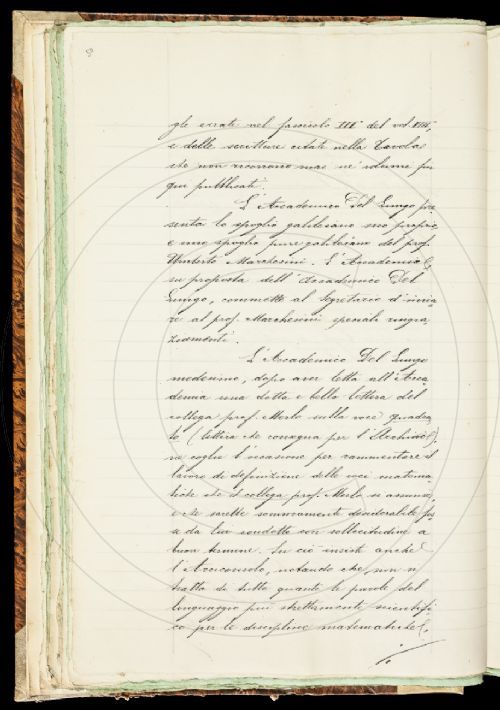 gli errati nel fascicolo III° del vol. VIII,
e delle scritture citate nella Tavola
che non ricorrano mai ne' volumi fin
qui pubblicati.
L'Accademico Del Lungo pre
senta lo spoglio galileiano suo proprio,
e uno spoglio pure galileiano del prof.
Umberto Marchesini. L'Accademia,
su proposta dell'Accademico Del
Lungo, commette al Segretario d'invia
re al prof. Marchesini speciali ringra
ziamenti.
L'Accademico Del Lungo
medesimo, dopo aver letta all'Acca
demia una dotta e bella lettera del
collega prof. Merlo sulla voce quadra
to (lettera che consegna per l'Archivio),
ne coglie l'occasione per rammentare il
lavoro di definizione delle voci matema
tiche che il collega prof. Merlo si assunse,
e che sarebbe sommamente desiderabile fos
se da lui condotto con sollecitudine a
buon termine. Su ciò insiste anche
l'Arciconsolo, notando che non si
tratta di tutte quante le parole del
linguaggio più strettamente scientifi
co per le discipline matematiche,